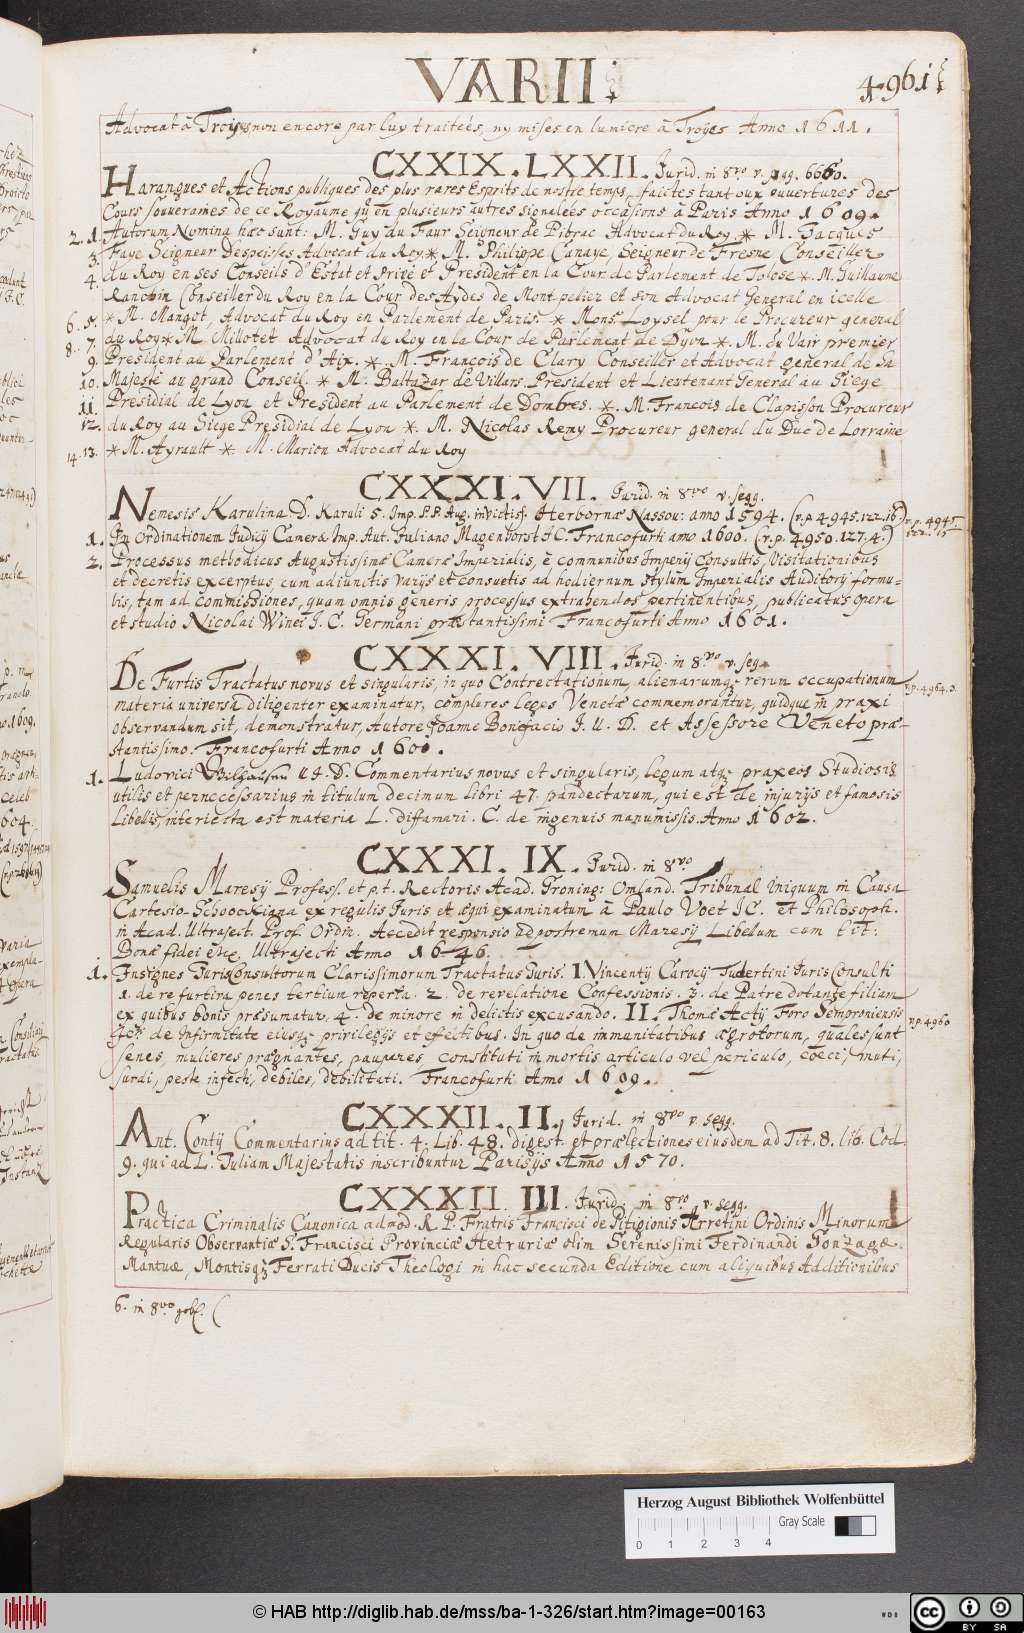 VARII.
4961.
Advocat à Troyes non encore par luy traitées, ny mises en lumiere à Troyes Anno 1611.
CXXIX. LXXII. Jurid. in 8vo v. pag. 6660.
Harangues et Actions publiques des plus rares Esprits de nostre temps, faictes tant oux ouvertures des
Cours souveraines de ce Royaume qu'en plusieurs autres signalées occasions à Paris Anno 1609.
2. 1. Autorum Nomina haec sunt: M. Guy du Faur Seigneur de Pibrac Advocat du Roy. * M. Jacques
3. Faye Seigneur Despeisses Advocat du Roy * M. Philippe Canaye, Seigneur de Fresne Conseiller
4. du Roy en ses Conseils d'Estat et Privé et President en la Cour de Parlement de Tolose * M. Guillaume
Ranchin Conseiller du Roy en la Cour des Aydes de Montpelier et son Advocat General en icelle
6. 5. * M. Mangot, Advocat du Roy en Parlement de Paris * Mons. Loysel pour le Procureur general
8. 7. du Roy * M. Millotet Advocat du Roy en la Cour de Parlement de Dijon * M. du Vair premier
9. President au Parlement d'Aix. * M. François de Clary Conseiller et Advocat general de Sa
10. Majesté au grand Conseil. * M. Baltazar de Villars. President et Lieutenant General au Siege
11. Presidial de Lyon et President au Parlement de Dombes. * M. Francois de Clapisson Procureur
12. du Roy au Siege Presidial de Lyon * M. Nicolas Remy Procureur general du Duc de Lorraine
14. 13. * M. Ayrault * M. Marion Advocat du Roy
CXXXI. VII. Jurid. in 8vo v. segg.
Nemesis Karulina D. Karuli 5. Imp. P.P. Aug. invictiss. Herbornae Nassou: anno 1594. (v.p. 4945.122.16)
v.p. 4945.
122. 15
1. In Ordinationem Judicij Camerae Imp. Aut. Juliano Magenhorst JC. Francofurti anno 1600. (v.p. 4950.127.4.)
2. Processus methodicus Augustissimae Camerae Imperialis, è communibus Imperij Consultis, Visitationibus
et decretis excerptus, cum adiunctis varijs et consuetis ad hodiernum stylum Imperialis Auditorij formu-
lis, tam ad commissiones, quam omnis generis processus extrahendos pertinentibus, publicatus opera
et studio Nicolai Winei J.C. Germani praestantissimi Francofurti Anno 1601.
CXXXI. VIII. Jurid. in 8vo v. seg.
De Furtis Tractatus novus et singularis, in quo Contrectationum, alienarumq; rerum occupationum
v.p. 4964.3.
materia universa diligenter examinatur, complures leges Venetae commemorantur, quidque in praxi
observandum sit, demonstratur, Autore Joanne Bonifacio J. U. D. et Assessore Veneto prae-
stantissimo. Francofurti Anno 1600.
1. Ludovici Gilhausen U.J.D. Commentarius novus et singularis, legum atq; praxeos Studiosis
utilis et pernecessarius in titulum decimum libri 47. pandectarum, qui est de injurijs et famosis
Libellis, interiecta est materia L. diffamari. C. de ingenuis manumissis. Anno 1602.
CXXXI. IX. Jurid. in 8vo
Samuelis Maresij Profess. et p.t. Rectoris Acad. Groning: Omland. Tribunal iniquum in Causa
Cartesio-Schoockiana ex regulis Juris et aequi examinatum à Paulo Voet JC. et Philosoph.
in Acad. Ultraject. Prof. Ordin. Accedit responsio ad postremum Maresij Libelum cum tit:
Bonae fidei etc. Ultrajecti Anno 1646.
1. Insignes JurisConsultorum Clarissimorum Tractatus Juris. I. Vincentij Carocij Tudertini JurisConsulti
1. de re furtiva penes tertium reperta. 2. de revelatione Confessionis. 3. de Patre dotante filiam
ex quibus bonis praesumatur. 4. de minore in delictis excusando. II. Thomae Actij Foro Semproniensis
v.p. 4960
JCti de Infirmitate eiusq; privilegijs et effectibus. In quo de immunitatibus aegrotorum, quales sunt
senes, mulieres praegnantes, pauperes, constituti in mortis articulo vel periculo, coeci, muti,
surdi, peste infecti, debiles, debilitati. Francofurti Anno 1609.
CXXXII. II. Jurid. in 8vo v. segg.
Ant. Contij Commentarius ad tit. 4. Lib. 48. digest. et praelectiones eiusdem ad Tit. 8. lib. Cod.
9. qui ad L. Juliam Majestatis inscribuntur Parisijs Anno 1570.
CXXXII. III. Jurid. in 8vo v. segg.
Practica Criminalis Canonica admod. R. P. Fratris Francisci de Pitigionis Arretini Ordinis Minorum
Regularis Observantiae S. Francisci Provinciae Hetruriae olim Serenissimi Ferdinandi Gonzagae
Mantuae, Montisq; Ferrati Ducis Theologi in hac secunda Editione cum aliquibus Additionibus
6. in 8vo
Herzog August Bibliothek Wolfenbüttel
Gray Scale
0 1 2 3 4
© HAB http://diglib.hab.de/mss/ba-1-326/start.htm?image=00163
WDB
CC BY SA